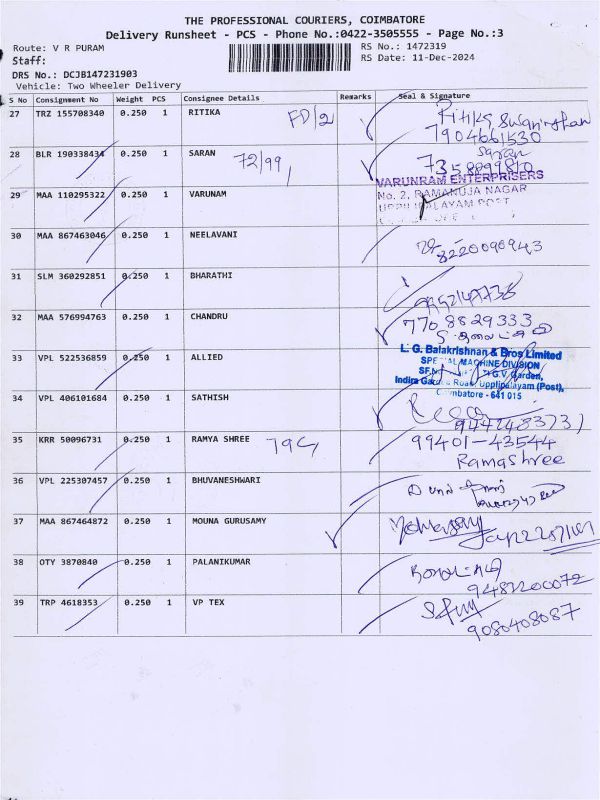 THE PROFESSIONAL COURIERS, COIMBATORE
Delivery Runsheet - PCS - Phone No.:0422-3505555 - Page No.:3
Route: V R PURAM RS No.: 1472319
Staff: RS Date: 11-Dec-2024
DRS No.: DCJB147231903
Vehicle: Two Wheeler Delivery
S No Consignment No Weight PCS Consignee Details Remarks Seal & Signature
27 TRZ 155708340 0.250 1 RITIKA FD/2
7904661530
28 BLR 190338434 0.250 1 SARAN 72/99, Saran
VARUNRAM ENTERPRISERS
29 MAA 110295322 0.250 1 VARUNAM No. 2, RAMANUJA NAGAR
UPPILIPALAYAM POST
30 MAA 867463046 0.250 1 NEELAVANI 8220090943
31 SLM 360292851 0.250 1 BHARATHI
32 MAA 576994763 0.250 1 CHANDRU 7708829333
L. G. Balakrishnan & Bros Limited
33 VPL 522536859 0.250 1 ALLIED SPECIAL MACHINE DIVISION
G.V. Garden,
Indira Garden Road, Upplipalayam (Post),
Coimbatore - 641 015
34 VPL 406101684 0.250 1 SATHISH
35 KRR 50096731 0.250 1 RAMYA SHREE 79C 99401-43544
Ramashree
36 VPL 225307457 0.250 1 BHUVANESHWARI
37 MAA 867464872 0.250 1 MOUNA GURUSAMY
38 OTY 3870840 0.250 1 PALANIKUMAR
39 TRP 4618353 0.250 1 VP TEX
9080408087